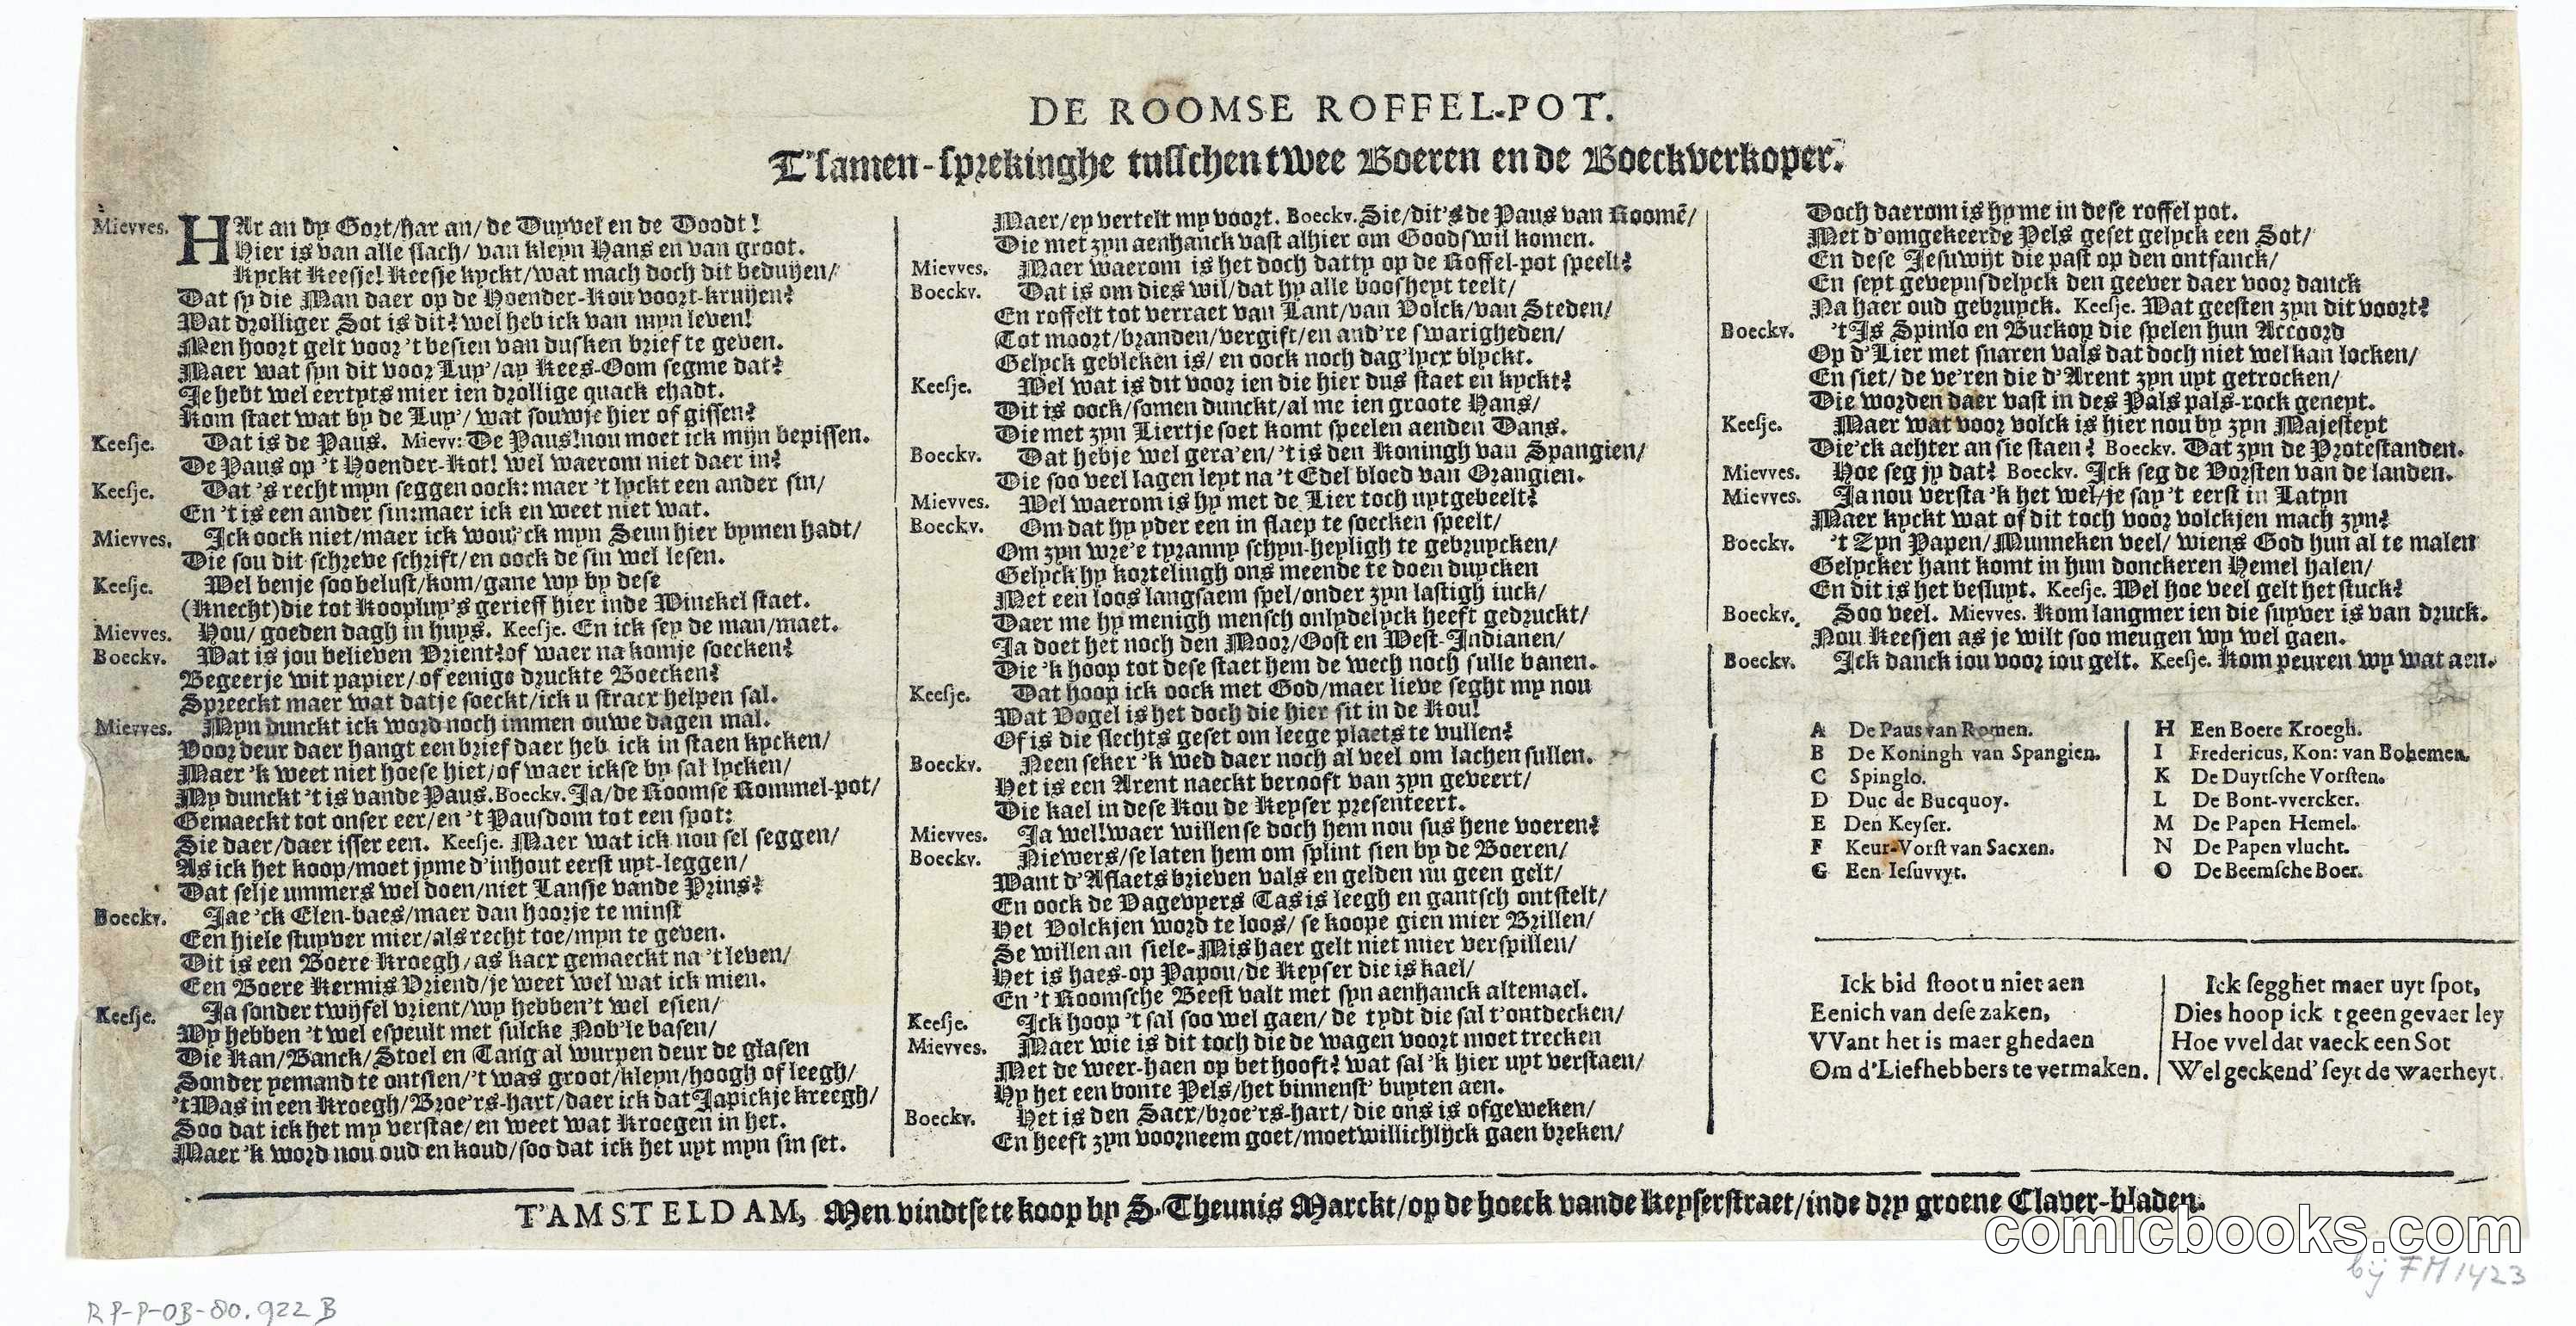 DE ROOMSE ROFFEL-POT.
T'samen-sprekinghe tusschen twee Boeren en de Boeckverkoper.
Mievves. HAr an by Gort/har an/de Duyvel en de Doodt!
Hier is van alle slach/ van kleyn Hans en van groot.
Kyckt Keesje! Keesje kyckt/wat mach doch dit beduyen/
Dat sy die Man daer op de Hoender-Kou voort-kruyen?
Wat drolliger Sot is dit? wel heb ick van myn leven!
Men hoort gelt voor 't besien van dusken brief te geven.
Maer wat syn dit voor Luy'/ay Kees-Oom segme dat?
Je hebt wel eertyts mier ien drollige quack ehadt.
Kom staet wat by de Luy'/ wat souwje hier of gissen?
Keesje. Dat is de Paus. Mievv: De Paus! nou moet ick mijn bepissen.
De Paus op 't Hoender-Kot! wel waerom niet daer in?
Keesje. Dat 's recht myn seggen oock: maer 't lyckt een ander sin/
En 't is een ander sin: maer ick en weet niet wat.
Mievves. Ick oock niet/maer ick wou 'ck myn Seun hier bymen hadt/
Die sou dit schreve schrift/en oock de sin wel lesen.
Keesje. Wel benje soo belust/kom/gane wy by dese
(Knecht) die tot Koopluy's gerieff hier inde Winckel staet.
Mievves. Hou/ goeden dagh in huys. Keesje. En ick sey de man/maet.
Boeckv. Wat is jou believen Vrient? of waer na komje soecken?
Begeerje wit papier/of eenige druckte Boecken?
Spreeckt maer wat datje soeckt/ick u stracx helpen sal.
Mievves. Myn dunckt ick word noch immen ouwe dagen mal.
Voor deur daer hangt een brief daer heb ick in staen kycken/
Maer 'k weet niet hoese hiet/of waer ickse by sal lycken/
My dunckt 't is vande Paus. Boeckv. Ja/de Roomse Rommel-pot/
Gemaeckt tot onser eer/en 't Pausdom tot een spot:
Sie daer/daer isser een. Keesje. Maer wat ick nou sel seggen/
As ick het koop/moet jyme d'inhout eerst uyt-leggen/
Dat selje ummers wel doen/niet Lansje vande Prins?
Boeckv. Jae 'ck Elen-baes/maer dan hoorje te minst
Een hiele stuyver mier/als recht toe/myn te geven.
Dit is een Boere Kroegh/as kacx gemaeckt na 't leven/
Een Boere Kermis Vriend/je weet wel wat ick mien.
Keesje. Ja sonder twijfel vrient/wy hebben't wel esien/
Wy hebben 't wel espeult met sulcke Nob'le basen/
Die Kan/Banck/Stoel en Tang al wurpen deur de glasen
Sonder yemand te ontsien/'t was groot/kleyn/hoogh of leegh/
't Was in een Kroegh/Broe'rs-hart/daer ick dat Japickje kreegh/
Soo dat ick het my verstae/en weet wat Kroegen in het.
Maer 'k word nou oud en koud/soo dat ick het uyt myn sin set.
Maer/ey vertelt my voort. Boeckv. Sie/dit's de Paus van Roomē/
Die met zyn aenhanck vast alhier om Goodswil komen.
Mievves. Maer waerom is het doch datty op de Roffel-pot speelt?
Boeckv. Dat is om dies wil/dat hy alle boosheyt teelt/
En roffelt tot verraet van Lant/van Volck/van Steden/
Tot moort/branden/vergift/en and're swarigheden/
Gelyck geblcken is/ en oock noch dag'lycx blyckt.
Keesje. Wel wat is dit voor ien die hier dus staet en kyckt?
Dit is oock/somen dunckt/al me ien groote Hans/
Die met zyn Liertje soet komt speelen aenden Dans.
Boeckv. Dat hebje wel gera'en/'t is den Koningh van Spangien/
Die soo veel lagen leyt na 't Edel bloed van Orangien.
Mievves. Wel waerom is hy met de Lier toch uytgebeelt?
Boeckv. Om dat hy yder een in slaep te soecken speelt/
Om zyn wre'e tyranny schyn-heyligh te gebruycken/
Gelyck hy kortelingh ons meende te doen duycken
Met een loos langsaem spel/onder zyn lastigh iuck/
Daer me hy menigh mensch onlydelyck heeft gedruckt/
Ja doet het noch den Moor/Oost en West-Indianen/
Die 'k hoop tot dese staet hem de wech noch sulle banen.
Keesje. Dat hoop ick oock met God/maer lieve seght my nou
Wat Vogel is het doch die hier sit in de Kou!
Of is die slechts geset om leege plaets te vullen?
Boeckv. Neen seker 'k wed daer noch al veel om lachen sullen.
Het is een Arent naeckt berooft van zyn geveert/
Die kael in dese Kou de Keyser presenteert.
Mievves. Ja wel! waer willense doch hem nou sus hene voeren?
Boeckv. Niewers/se laten hem om splint sien by de Boeren/
Want d'Aflaets brieven vals en gelden nu geen gelt/
En oock de Vagevyers Tas is leegh en gantsch ontstelt/
Het Volckjen word te loos/ se koope gien mier Brillen/
Se willen an siele-Mis haer gelt niet mier verspillen/
Het is haes-op Papou/de Keyser die is kael/
En 't Roomsche Beest valt met syn aenhanck altemael.
Keesje. Ick hoop 't sal soo wel gaen/ de tydt die sal t'ontdecken/
Mievves. Maer wie is dit toch die de wagen voort moet trecken
Met de weer-haen op bet hooft? wat sal 'k hier uyt verstaen/
Hy het een bonte Pels/het binnenst' buyten aen.
Boeckv. Het is den Sacx/broe'rs-hart/ die ons is ofgeweken/
En heeft zyn voorneem goet/moetwillichlijck gaen breken/
Doch daerom is hy me in dese roffel pot.
Met d'omgekeerde Pels geset gelyck een Sot/
En dese Jesuwijt die past op den ontfanck/
En seyt geveynsdelyck den geever daer voor danck
Na haer oud gebruyck. Keesje. Wat geesten zyn dit voort?
Boeckv. 't Is Spinlo en Buckoy die spelen hun Accoord
Op d'Lier met snaren vals dat doch niet wel kan locken/
En siet/ de ve'ren die d'Arent zyn uyt getrocken/
Die worden daer vast in des Pals pals-rock geneyt.
Keesje. Maer wat voor volck is hier nou by zyn Majesteyt
Die'ck achter an sie staen? Boeckv. Dat zyn de Protestanden.
Mievves. Hoe seg jy dat? Boeckv. Ick seg de Vorsten van de landen.
Mievves. Ja nou versta 'k het wel/je say 't eerst in Latyn
Maer kyckt wat of dit toch voor volckjen mach zyn?
Boeckv. 't Zyn Papen/Munneken veel/ wiens God hun al te malen
Gelycker hant komt in hun donckeren Hemel halen/
En dit is het besluyt. Keesje. Wel hoe veel gelt het stuck?
Boeckv. Soo veel. Mievves. Kom langmer ien die suyver is van druck.
Nou Keesjen as je wilt soo meugen wy wel gaen.
Boeckv. Ick danck iou voor iou gelt. Keesje. Kom peuren wy wat aen.
A De Paus van Romen.
B De Koningh van Spangien.
C Spinglo.
D Duc de Bucquoy.
E Den Keyser.
F Keur-Vorst van Sacxen.
G Een Iesuvvyt.
H Een Boere Kroegh.
I Fredericus, Kon: van Bohemen.
K De Duytsche Vorsten.
L De Bont-vvercker.
M De Papen Hemel.
N De Papen vlucht.
O De Beemsche Boer.
Ick bid stoot u niet aen
Eenich van dese zaken,
VVant het is maer ghedaen
Om d'Liefhebbers te vermaken.
Ick segghet maer uyt spot,
Dies hoop ick t geen gevaer ley
Hoe vvel dat vaeck een Sot
Wel geckend' seyt de waerheyt.
T'AMSTELDAM, Men vindtse te koop by S. Theunis Marckt/op de hoeck vande Keyserstraet/inde dry groene Claver-bladen.
comicbooks.com
bij FM 1423
RP-P-OB-80.922 B